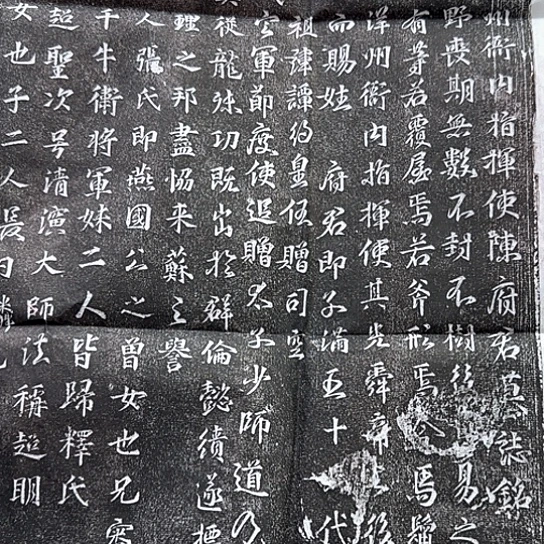 州衙内指揮使陳府君墓誌銘
野喪期無數不封不樹後易之
有夢若覆屋焉若斧形焉焉
洋州衙内指揮使其先舜帝之後
而賜姓 府君即子滿五十代
祖諱譚約皇任贈司空
空軍節度使追贈太子少師道乃
從龍殊功既出於群倫懿績遂標
之邦盡協來蘇之譽
人張氏即燕國公之曾女也兄
千牛衛將軍妹二人皆歸釋氏
超聖次号清演大師法稱超明
女也子二人長曰